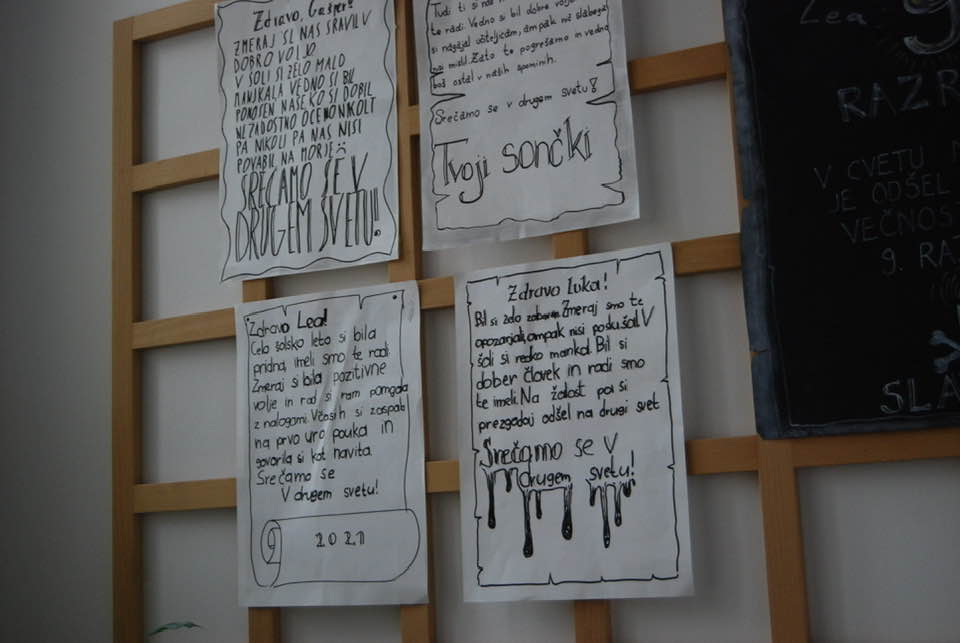 Zdravo, Gašper!
ZMERAJ SI NAS SRAVIL V
DOBRO VOLJO
V ŠOLI SI ZELO MALO
MANJKALA VEDNO SI BIL
PONOSEN NASE KO SI DOBIL
NEZADOSTNO OCENO NIKOLT
PA NIKOLI PA NAS NISI
POVABIL NA MORJE
SREČAMO SE V
DRUGEM SVETU!!
Tudi ti si nas
te radi. Vedno si bil dobre volje
si nagajal učiteljicam, ampak nič slabega
nisi mislil. Zato te pogrešamo in vedno
boš ostal v naših spominih.
Srečamo se v drugem svetu!
Tvoji sončki
Zdravo Lea!
Celo šolsko leto si bila
pridna, imeli smo te radi.
Zmeraj si bila pozitivne
volje in rad si nam pomgala
z nalogami. Včasih si zaspala
na prvo uro pouka in
govorila si kot navita.
Srečamo se
V drugem svetu!
9
2021
Zdravo Luka!
Bil si zelo zabaven. Zmeraj smo te
opozarjali, ampak nisi poslušal. V
šoli si redko mankal. Bil si
dober človek in radi smo
te imeli. Na žalost pa si
prezgodaj odšel na drugi svet
Srečamo se v
drugem svetu!
Lea
9
RAZR
V CVETU
JE ODŠEL
VEČNOS
9. RA
SLA